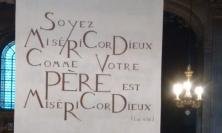 Soyez
MiséRiCorDieux
Comme Votre
PÈRE est
MiséRiCorDieux